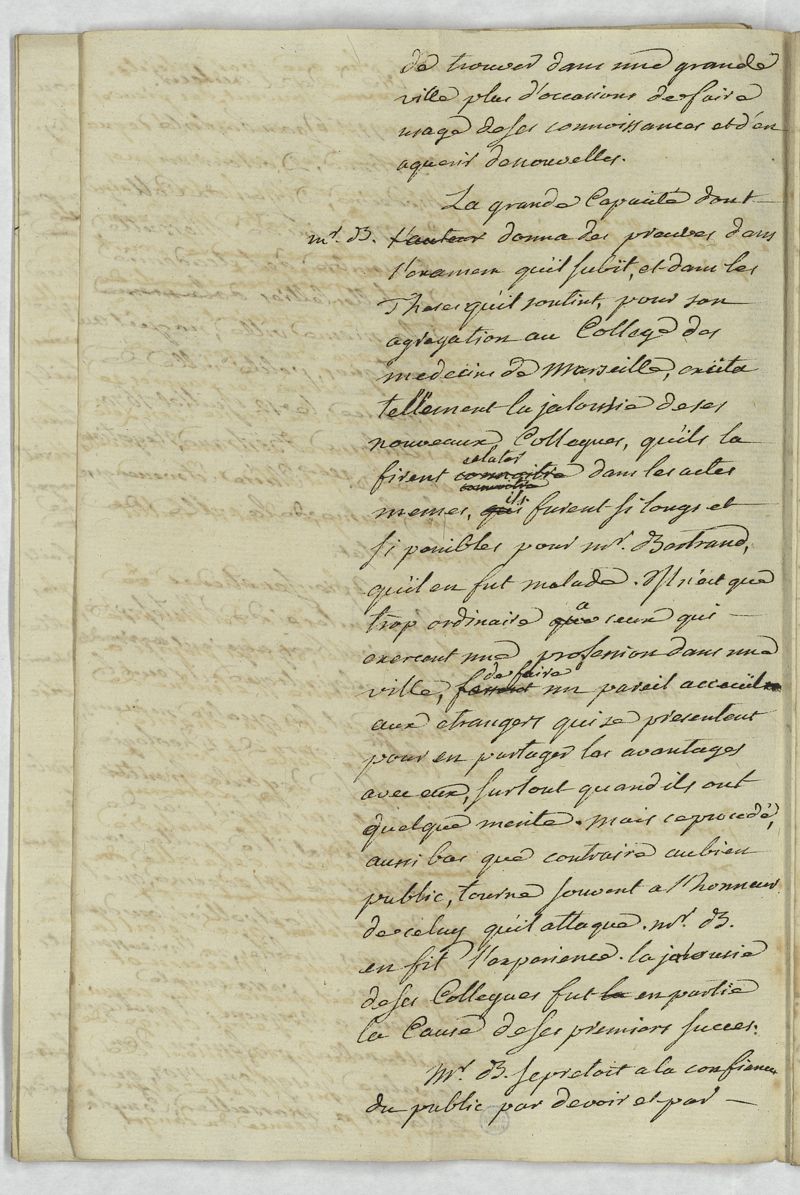 de trouver dans une grande
ville plus d'occasions de faire
usage de ses connoissances et d'en
aquerir de nouvelles.
La grande Capacité dont
mr. B. l'auteur donna des preuves dans
l'examen qu'il subit, et dans les
Theses qu'il soutint, pour son
agregation au College des
medecins de Marseille, exita
tellement la jalousie de ses
nouveaux Collegues, qu'ils la
eclater
firent connoitre dans les actes
connoitre
ils
memes, qui furent si longs et
si penibles pour mr. Bertrand,
qu'il en fut malade. Il n'est que
à
trop ordinaire que ceux qui
exercent une profession dans une
de faire
ville, fassent un pareil accceüil
aux etrangers qui se presentent
pour en partager les avantages
avec eux, surtout quand ils ont
quelque merite. mais ce procedé,
aussi bas que contraire au bien
public, tourne souvent a l'honneur
de celuy qu'il attaque. mr. B.
en fit l'experience. la jalousie
de ses Collegues fut la en partie
la Cause de ses premiers succes.
Mr. B. se pretoit a la confiance
du public par devoir et par